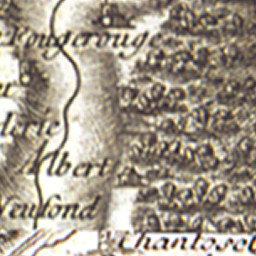 Rougerouge
er
lerie
Albert
Neufond
Chantosel